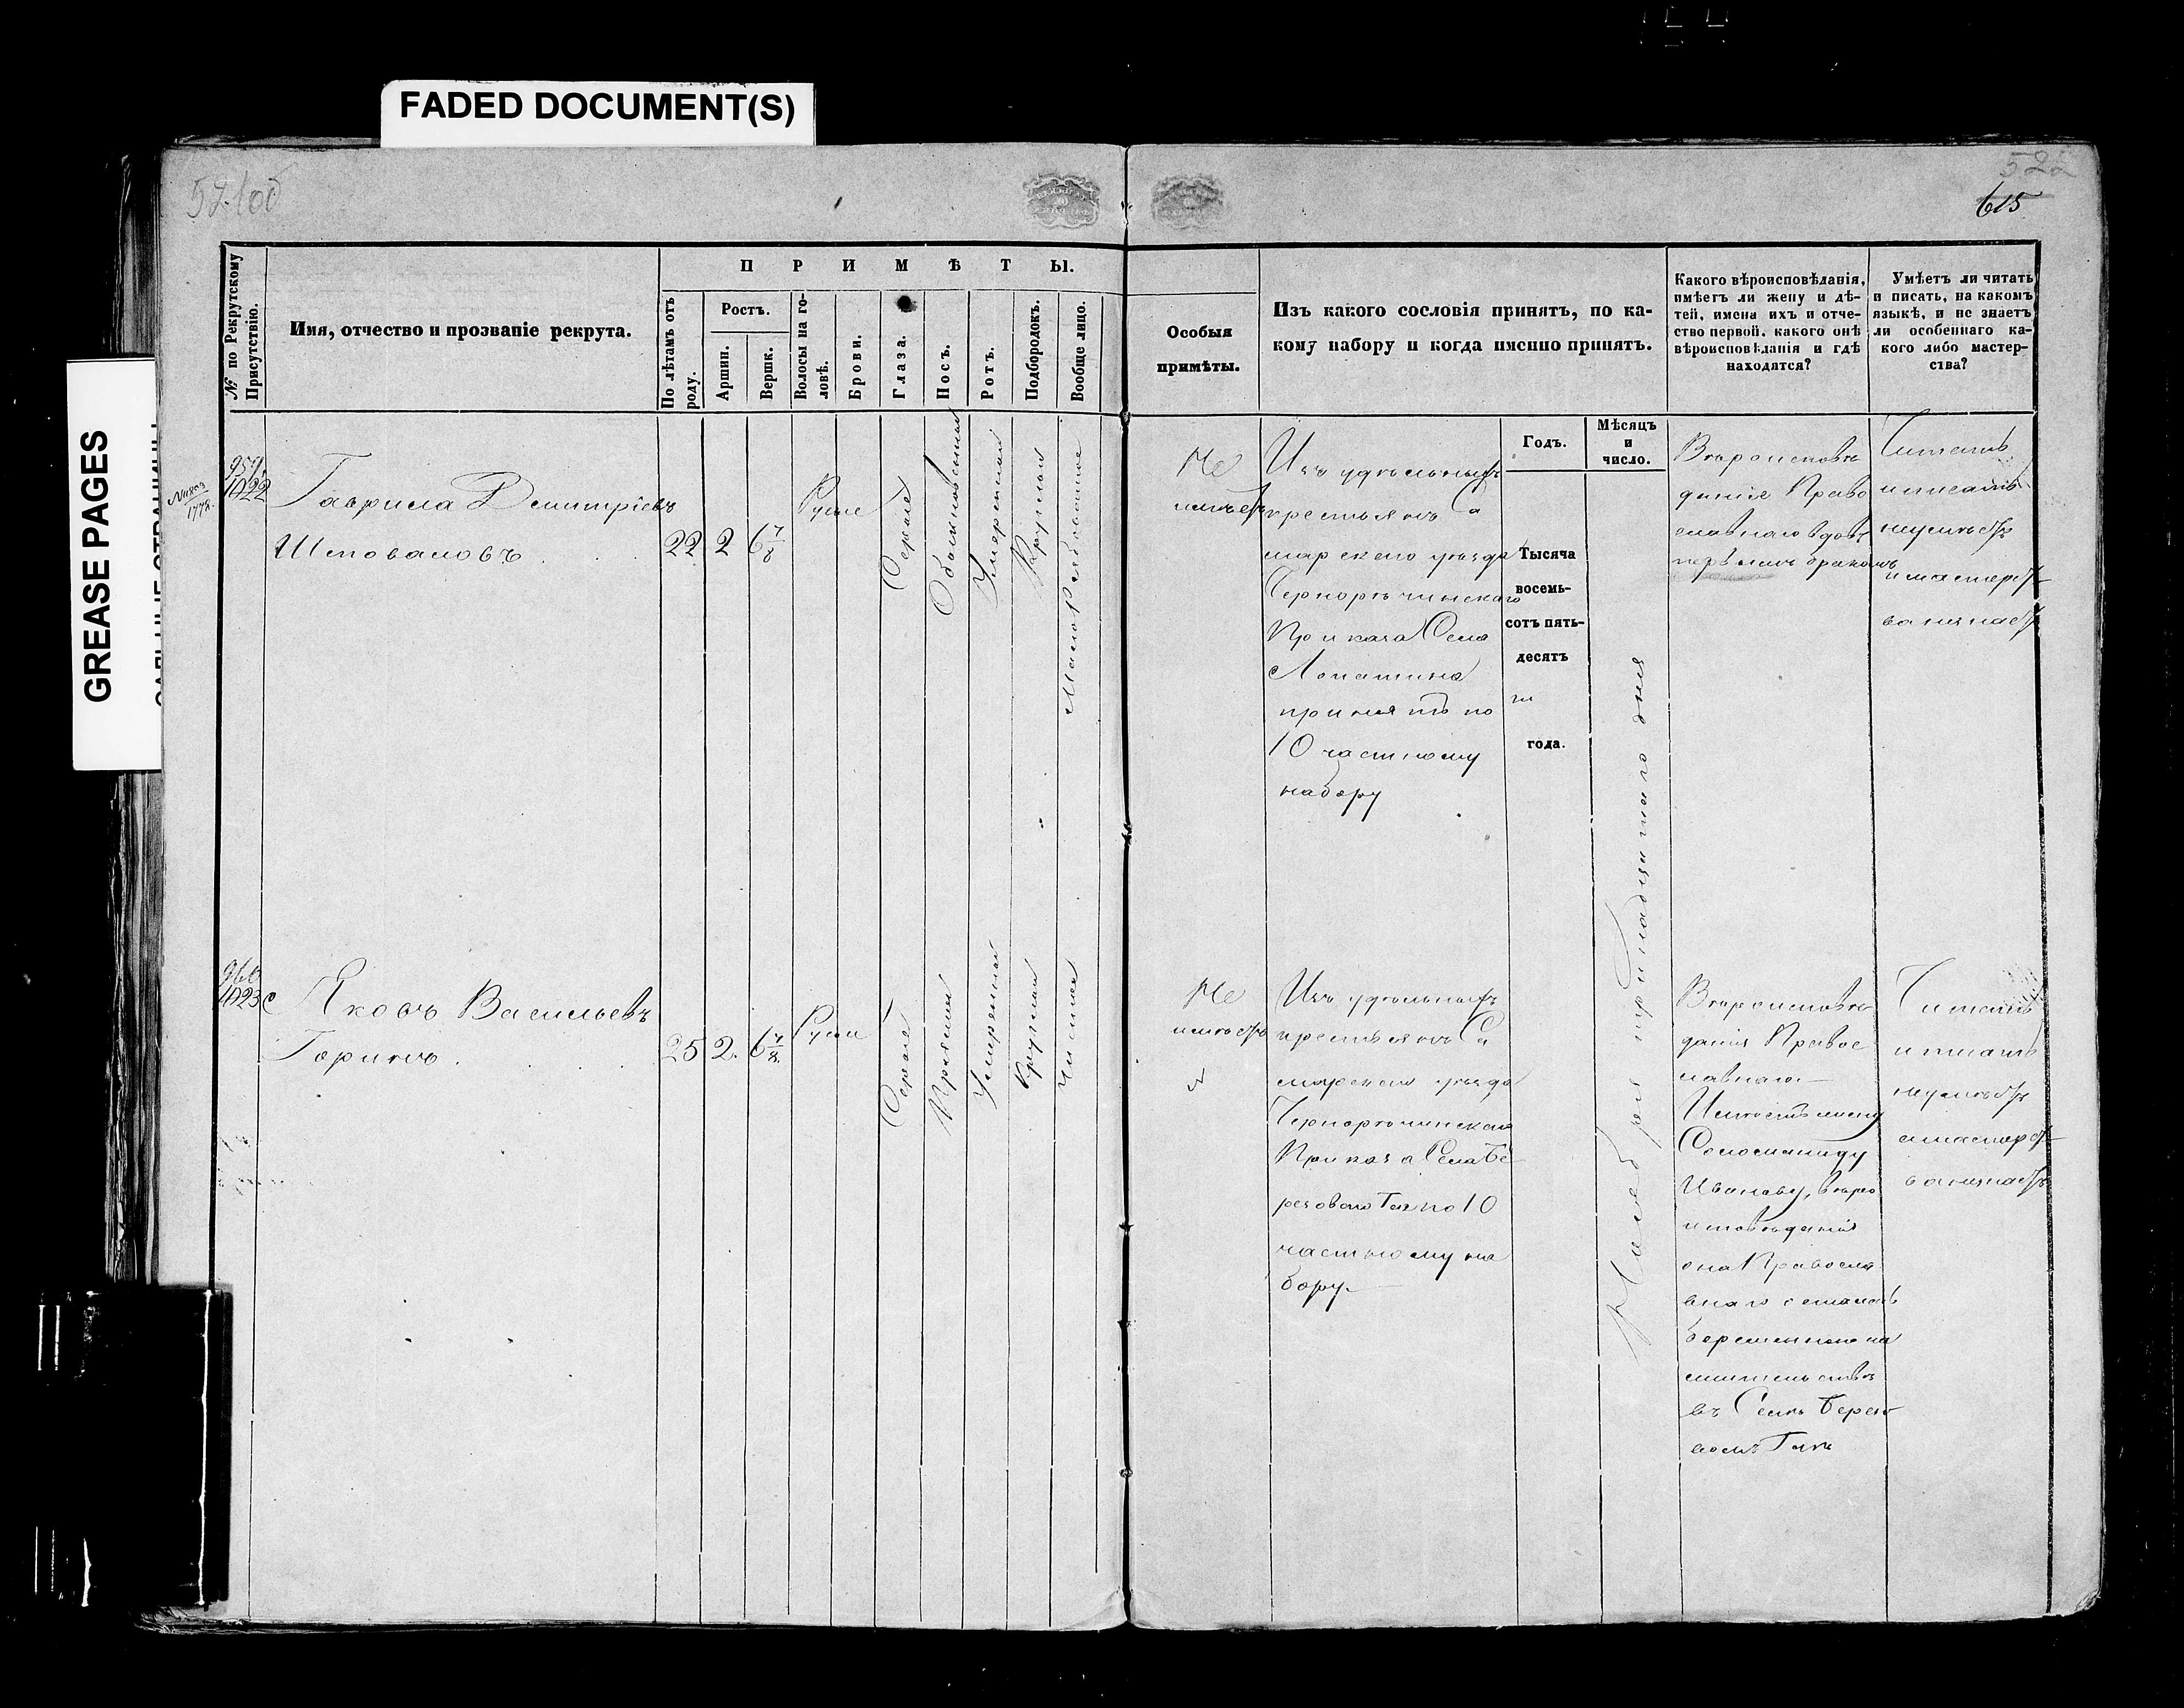 FADED DOCUMENT(S)
GREASE PAGES
615
№ по Рекрутскому Присутствію.
Имя, отчество и прозваніе рекрута.
ПРИМѢТЫ.
По лѣтамъ отъ роду.
Ростъ.
Аршин.
Вершк.
Волосы на головѣ.
Брови.
Глаза.
Носъ.
Ротъ.
Подбородокъ.
Вообще лицо.
Особыя
примѣты.
Изъ какого сословія принятъ, по ка-
кому набору и когда именно принятъ.
Какого вѣроисповѣданія,
имѣетъ ли жену и дѣ-
тей, имена ихъ и отче-
ство первой, какого онѣ
вѣроисповѣданія и гдѣ
находятся?
Умѣетъ ли читать
и писать, на какомъ
языкѣ, и не знаетъ
ли особеннаго ка-
кого либо мастер-
ства?
Годъ.
Мѣсяцъ
и
число.
959
1022
Гаврила Дмитріевъ
Шеповаловъ
22
2
6 7/8
Русые
Серые
Обыкновенный
Умеренный
Круглый
Малорябоватое
Не
имѣетъ
Изъ удѣльныхъ
крестьянъ Са
марскаго уѣзда
Чернорѣчинскаго
Приказа Села
Лопатина
принятъ по
10 частному
набору
Тысяча
восемь-
сотъ пять-
десятъ
года.
Ноября тринадцатаго дня
Вѣроисповѣ
данія Право
славнаго вдовъ
первымъ бракомъ
Читать
и писать
неумѣетъ
и мастерст
ва незнаетъ
960
1023
Яковъ Васильевъ
Горинъ.
25
2.
6 7/8
Русые
Серые
Прямой
Умеренный
Круглый
Чистое
Не
имѣетъ
Изъ удѣльныхъ
крестьянъ Са
марскаго уѣзда
Чернорѣчинскаго
Приказа Села Бе
резоваго Гая по 10
частному на
бору.
Вѣроисповѣ
данія Правос
лавнаго.
Имѣетъ жену
Соломаниду
Иванову, вѣро
исповѣданія
она Правосла
внаго осталась
беременною на
жительствѣ
въ Селѣ Березо
вомъ Гаѣ
Читать
и писать
неумѣетъ
и мастерст
ва незнаетъ